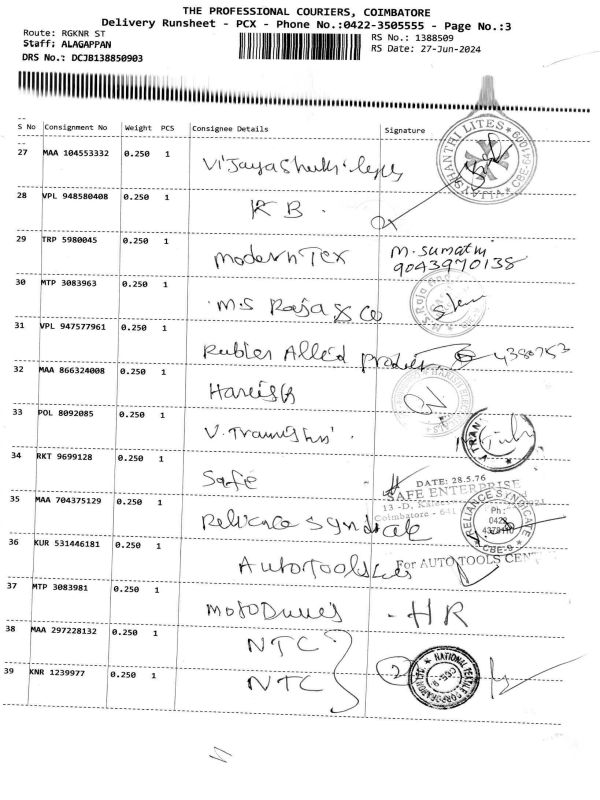 THE PROFESSIONAL COURIERS, COIMBATORE
Delivery Runsheet - PCX - Phone No.:0422-3505555 - Page No.:3
Route: RGKNR ST
RS No.: 1388509
Staff: ALAGAPPAN
RS Date: 27-Jun-2024
DRS No.: DCJB138850903
S No Consignment No Weight PCS Consignee Details Signature
27 MAA 104553332 0.250 1
SHANTHI LITES
28 VPL 948580408 0.250 1 K B .
29 TRP 5980045 0.250 1 Modern Tex M. Sumathi
9043970138
30 MTP 3083963 0.250 1 M.S Raja & Co
31 VPL 947577961 0.250 1 Rubber Allied
32 MAA 866324008 0.250 1 Harish
33 POL 8092085 0.250 1
34 RKT 9699128 0.250 1 Safe
DATE: 28.5.76
SAFE ENTERPRISE
Coimbatore - 641
35 MAA 704375129 0.250 1 Reliance Syndicate
RELIANCE SYNDICATE
Ph:
0422
CBE-9
36 KUR 531446181 0.250 1 Autotools
For AUTO TOOLS CEN
37 MTP 3083981 0.250 1 - HR
38 MAA 297228132 0.250 1 NTC
2
NATIONAL TEXTILE CORPORATION
39 KNR 1239977 0.250 1 NTC